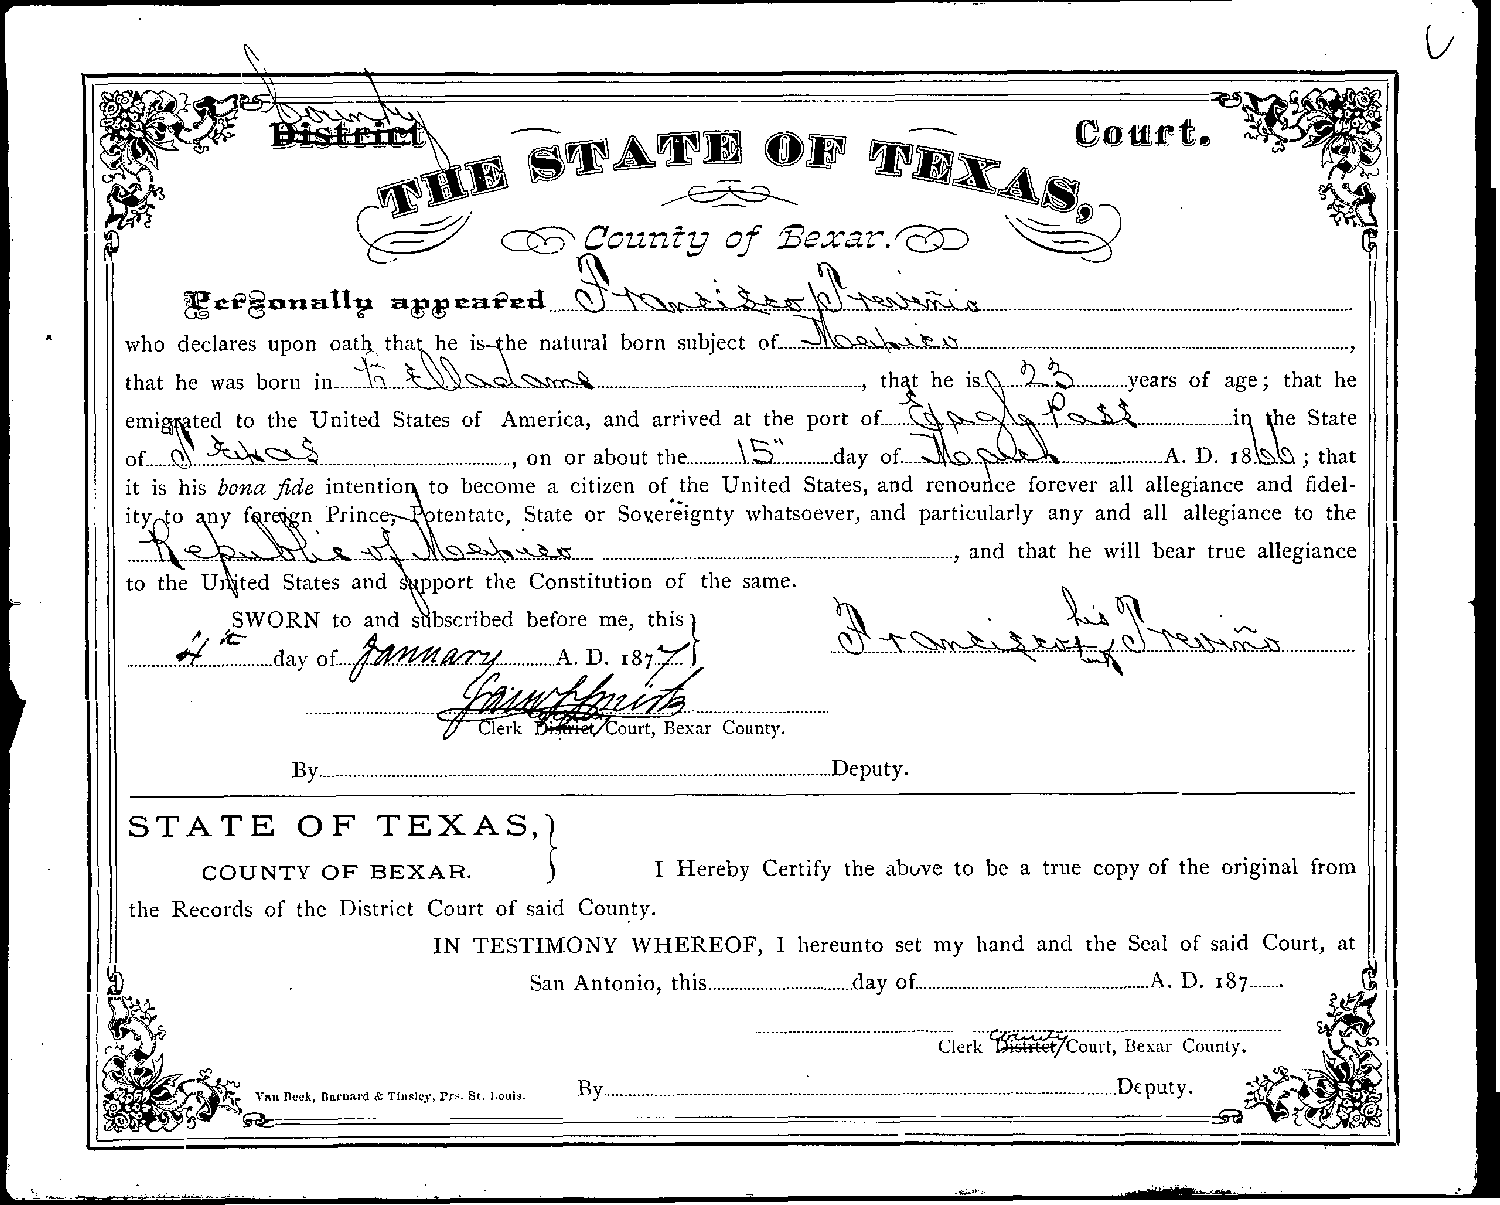 County
District Court.
THE STATE OF TEXAS,
County of Bexar.
Personally appeared Francisco Treviño
who declares upon oath that he is the natural born subject of Mexico,
that he was born in, that he is 23 years of age; that he
emigrated to the United States of America, and arrived at the port of Eagle Pass in the State
of Texas, on or about the 15" day of March A. D. 1866; that
it is his bona fide intention to become a citizen of the United States, and renounce forever all allegiance and fidel-
ity to any foreign Prince, Potentate, State or Sovereignty whatsoever, and particularly any and all allegiance to the
Republic of Mexico, and that he will bear true allegiance
to the United States and support the Constitution of the same.
SWORN to and subscribed before me, this
4th day of January A. D. 1877
Francisco his Treviño
Clerk District Court, Bexar County.
By Deputy.
STATE OF TEXAS,
COUNTY OF BEXAR.
I Hereby Certify the above to be a true copy of the original from
the Records of the District Court of said County.
IN TESTIMONY WHEREOF, I hereunto set my hand and the Seal of said Court, at
San Antonio, this day of A. D. 187
County
Clerk District Court, Bexar County.
By Deputy.
Van Beek, Barnard & Tinsley, Prs. St. Louis.